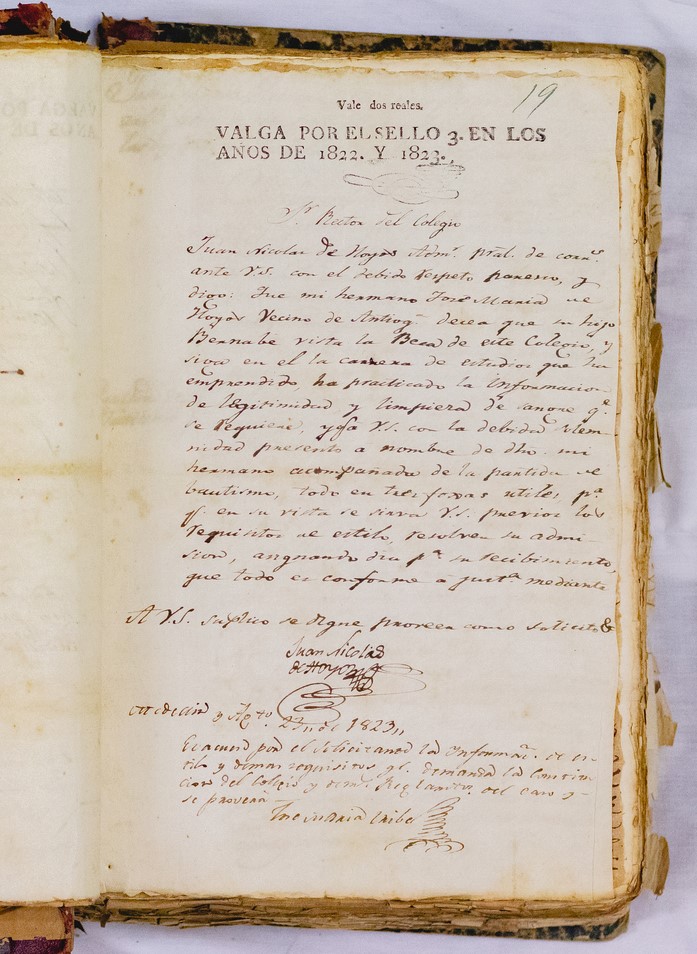 19
Vale dos reales.
VALGA POR EL SELLO 3. EN LOS
AÑOS DE 1822. Y 1823.
Sr. Rector del Colegio
Juan Nicolas de Hoyos Admr. pral. de corrs.
ante V.S. con el debido respeto paresco, y
digo: Que mi hermano José Maria de
Hoyos Vecino de Antioqa. decea que su hijo
Bernabe vista la Beca de este Colegio, y
siga en el la carrera de estudios que ha
emprendido, ha practicado la Informacion
de legitimidad y limpieza de sangre qe.
se requiere, y qe. a V.S. con la debida solem-
nidad presento a nombre de dho. mi
hermano acompañada de la partida de
bautismo, todo en tres foxas utiles, pa.
qe. en su vista se sirva V.S. previos los
requisitos de estilo, resolver su admi-
sion, asignando dia pa. su recibimiento,
que todo es conforme a justa. mediante
A V.S. suplico se digne proveer como solicito &
Juan Nicolas
de Hoyos
Medellin y Agto. 23 de 1823,,
Evacuese por el solicitante la Informan. de es-
tilo y demas requisitos qe. demanda la constitu-
cion del Colegio y demas. Reglamtos. del caso y
se proveerá
Jose Maria Uribe